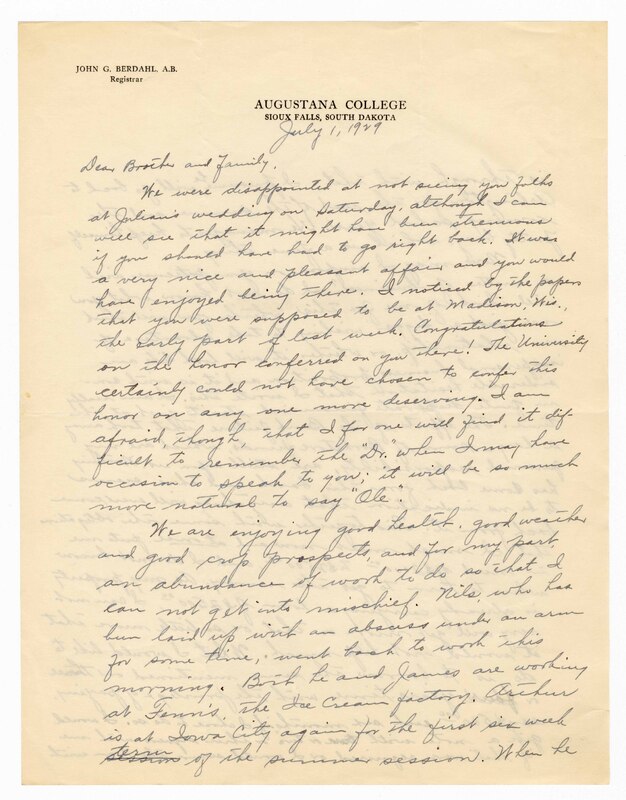 JOHN G. BERDAHL, A.B.
Registrar
AUGUSTANA COLLEGE
SIOUX FALLS, SOUTH DAKOTA
July 1, 1929
Dear Brother and Family.
We were disappointed at not seeing you folks
at Julian's wedding on Saturday, although I can
will see that it might have been strenuous
if you should have had to go right back. It was
a very nice and pleasant affair and you would
have enjoyed being there. I noticed by the papers
that you were supposed to be at Madison, Wis.,
the early part of last week. Congratulations
on the honor conferred on you there! The University
certainly could not have chosen to confer this
honor on any one more deserving. I am
afraid, though, that I for one will find it dif-
ficult to remember the "Dr." when I may have
occasion to speak to you; it will be so much
more natural to say "Ole".
We are enjoying good health, good weather
and good crop prospects, and for my part,
an abundance of work to do so that I
can not get into mischief. Nils, who has
been laid up with an abscess under an arm
for some time, went back to work this
morning. Both he and James are working
at Fenn's, the Ice Cream factory. Arthur
is at Iowa City again for the first six week
term
session of the summer session. When he